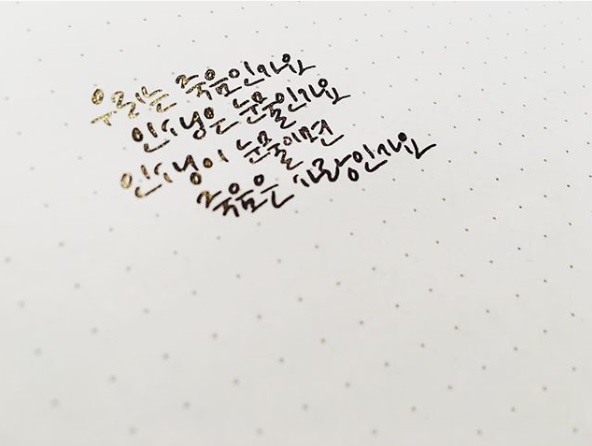 우리는 죽음인가요
안녕은 눈물인가요
안녕이 눈물이면
죽음은 사랑인가요